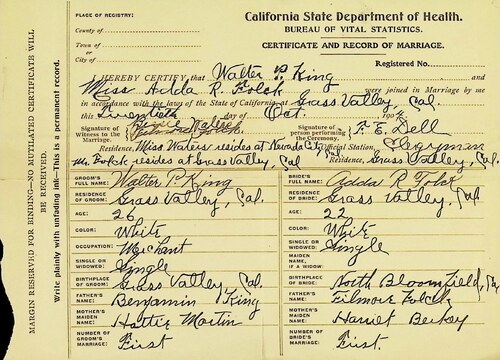 California State Department of Health.
BUREAU OF VITAL STATISTICS.
CERTIFICATE AND RECORD OF MARRIAGE.
PLACE OF REGISTRY:
County of
Town of
or
City of
Registered No.
I HEREBY CERTIFY, that Walter P. King and
Miss Adda R. Folck were joined in Marriage by me
in accordance with the laws of the State of California at Grass Valley, Cal.
this Twentieth day of Oct. 190
Signature of Witness to the Marriage.
Signature of person performing the Ceremony. F. E. Dell
Residence, Miss Waters resides at Nevada City Official Station, Clergyman
Folck resides at Grass Valley, Cal Residence, Grass Valley, Cal.
GROOM'S FULL NAME: Walter P. King BRIDE'S FULL NAME: Adda R Folck
RESIDENCE OF GROOM: Grass Valley, Cal. RESIDENCE OF BRIDE: Grass Valley, Cal.
AGE: 26 AGE: 22
COLOR: White COLOR: White
OCCUPATION: Merchant SINGLE OR WIDOWED: Single
SINGLE OR WIDOWED: Single MAIDEN NAME, IF A WIDOW:
BIRTHPLACE OF GROOM: Grass Valley, Cal. BIRTHPLACE OF BRIDE: North Bloomfield, Cal.
FATHER'S NAME: Benjamin King FATHER'S NAME: Filmore Folck
MOTHER'S MAIDEN NAME: Hattie Martin MOTHER'S MAIDEN NAME: Harriet
NUMBER OF GROOM'S MARRIAGE: First NUMBER OF BRIDE'S MARRIAGE: First.
MARGIN RESERVED FOR BINDING—NO MUTILATED CERTIFICATE WILL
BE RECEIVED.
Write plainly with unfading ink—This is a permanent record.